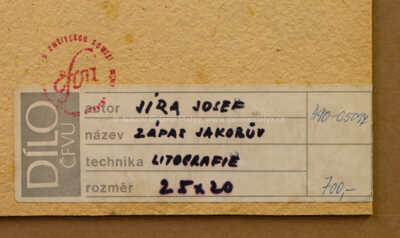 DÍLO
ČFVU
autor JÍRA JOSEF
název ZÁPAS JAKOBŮV
technika LITOGRAFIE
rozměr 25x20
700,-